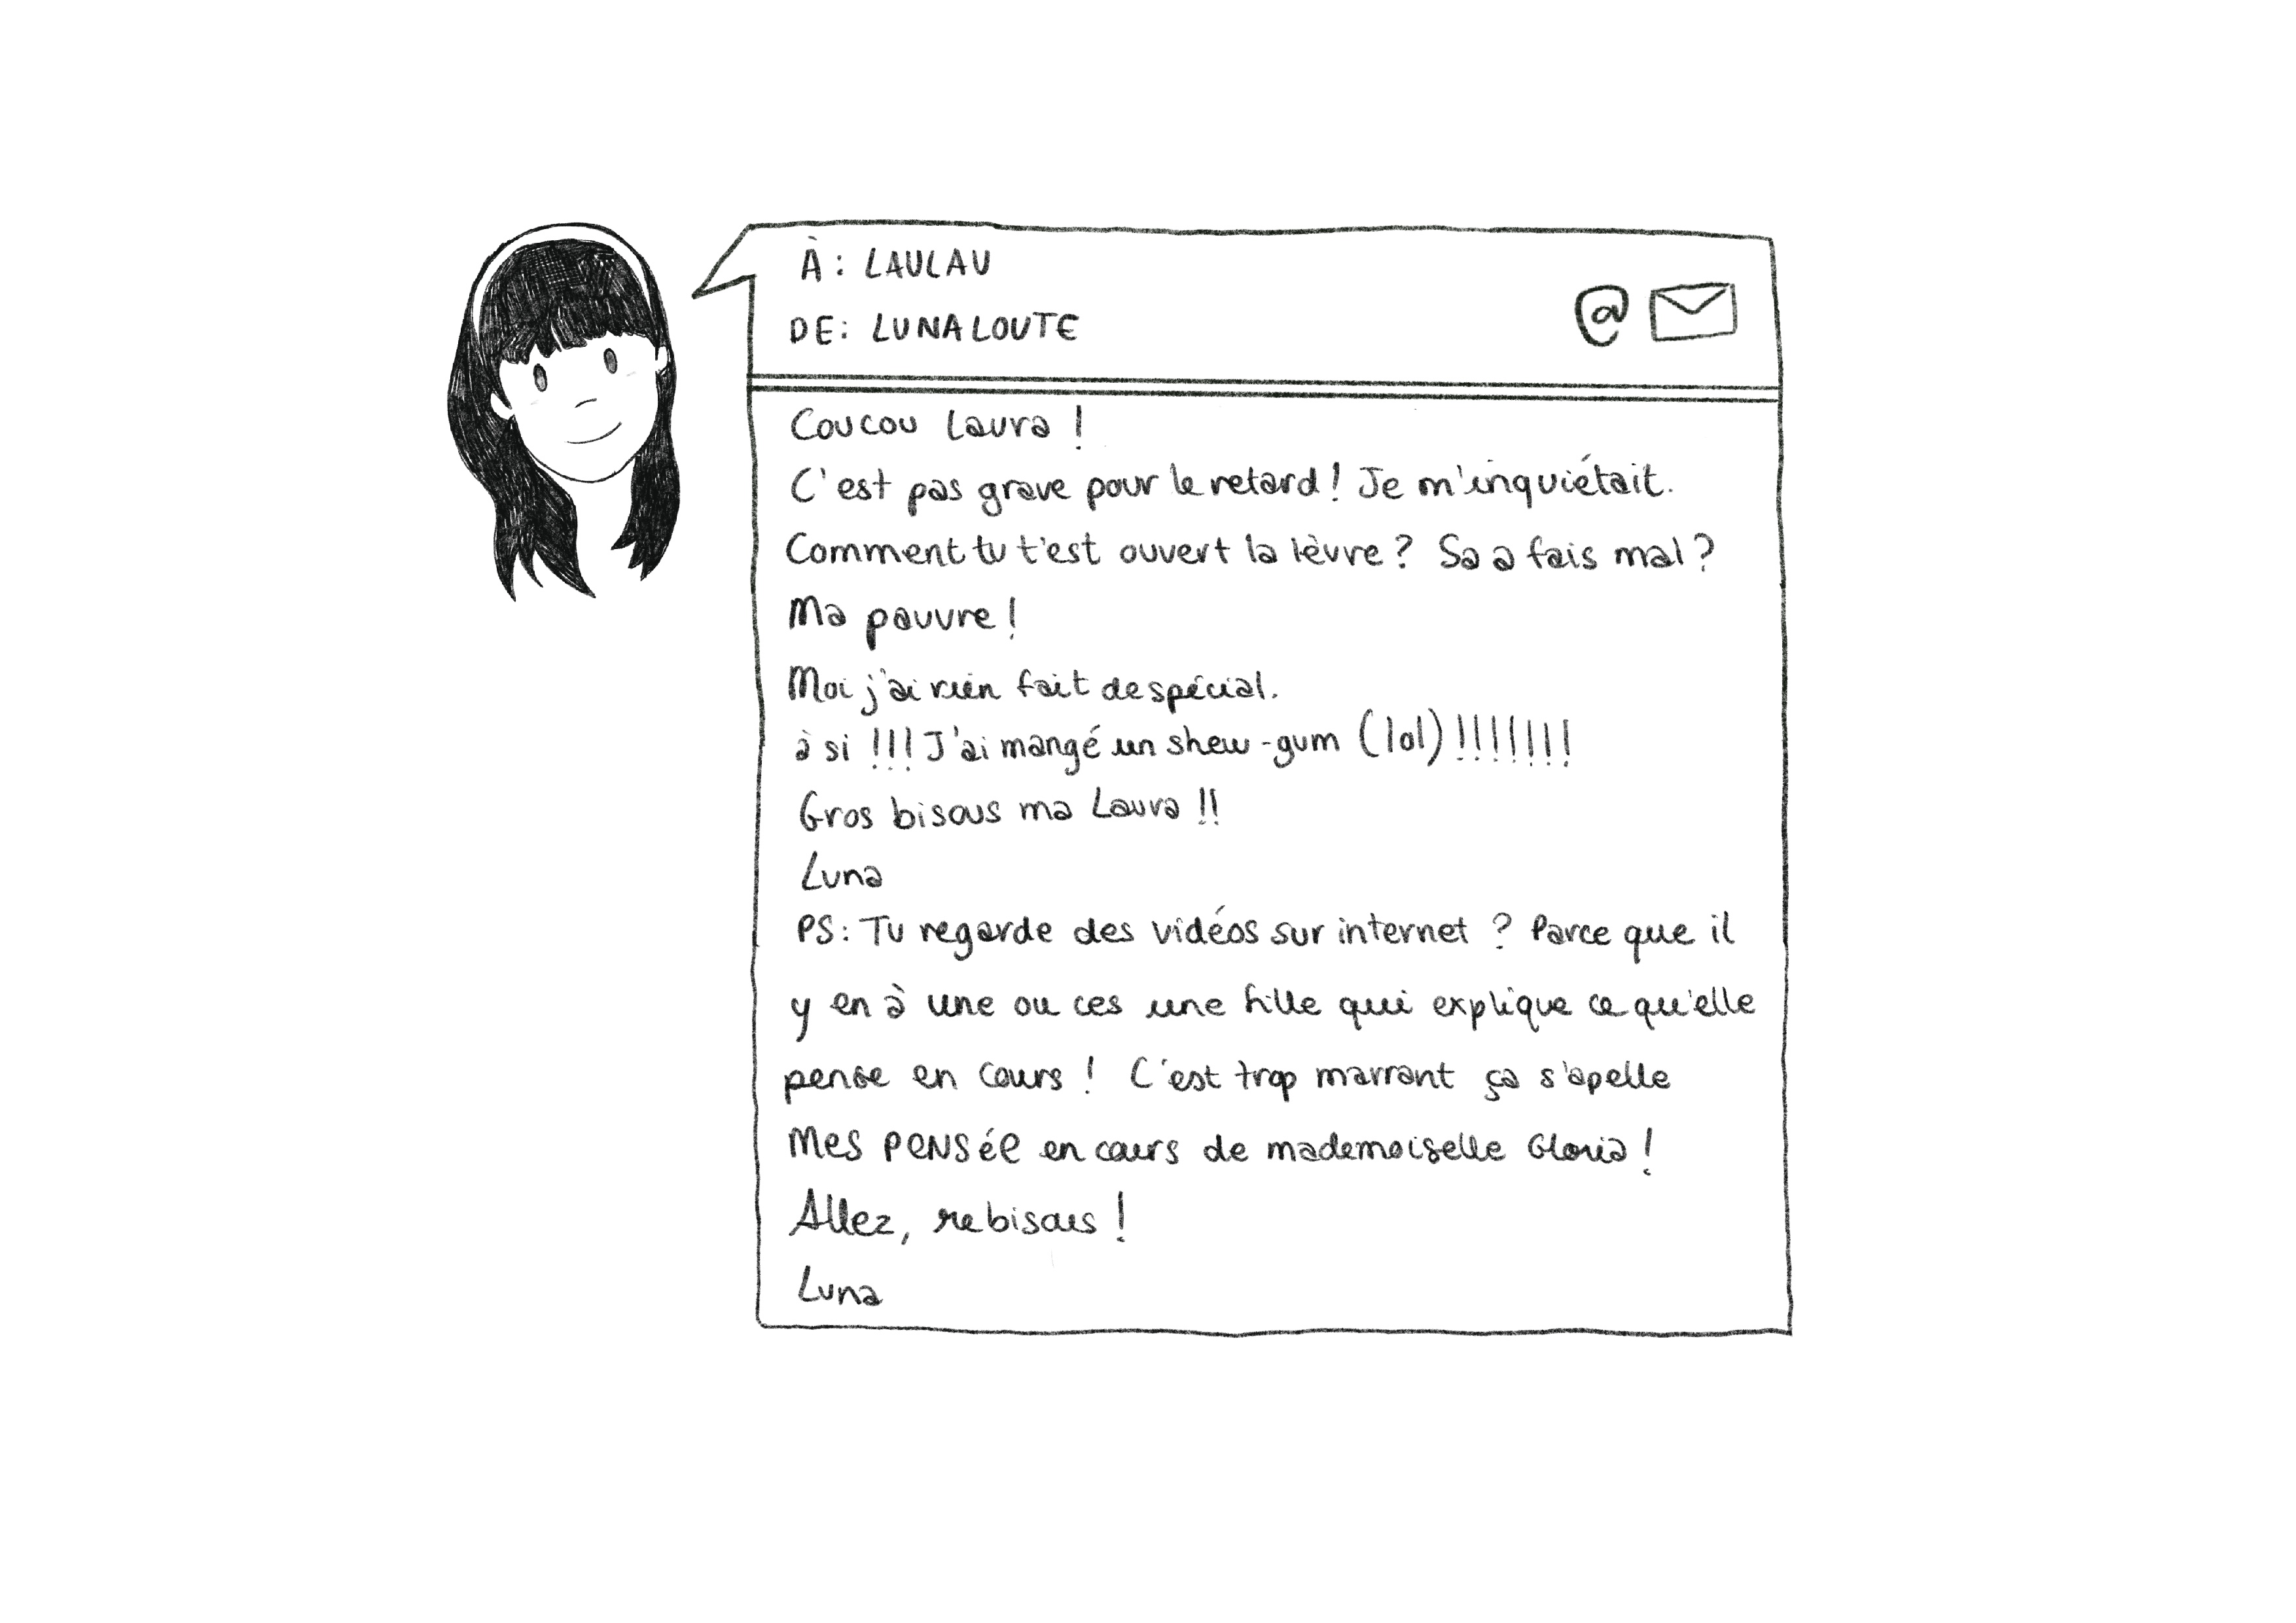 À : LAULAU
DE : LUNALOUTE
@
Coucou Laura !
C'est pas grave pour le retard ! Je m'inquiétait.
Comment tu t'est ouvert la lèvre ? Sa a fais mal ?
Ma pauvre !
Moi j'ai rien fait de spécial.
à si !!! J'ai mangé un shew-gum (lol) !!!!!!!
Gros bisous ma Laura !!
Luna
PS : Tu regarde des vidéos sur internet ? Parce que il
y en à une ou ces une fille qui explique ce qu'elle
pense en cours ! C'est trop marrant ça s'apelle
Mes PENSée en cours de mademoiselle Gloria !
Allez, re bisous !
Luna